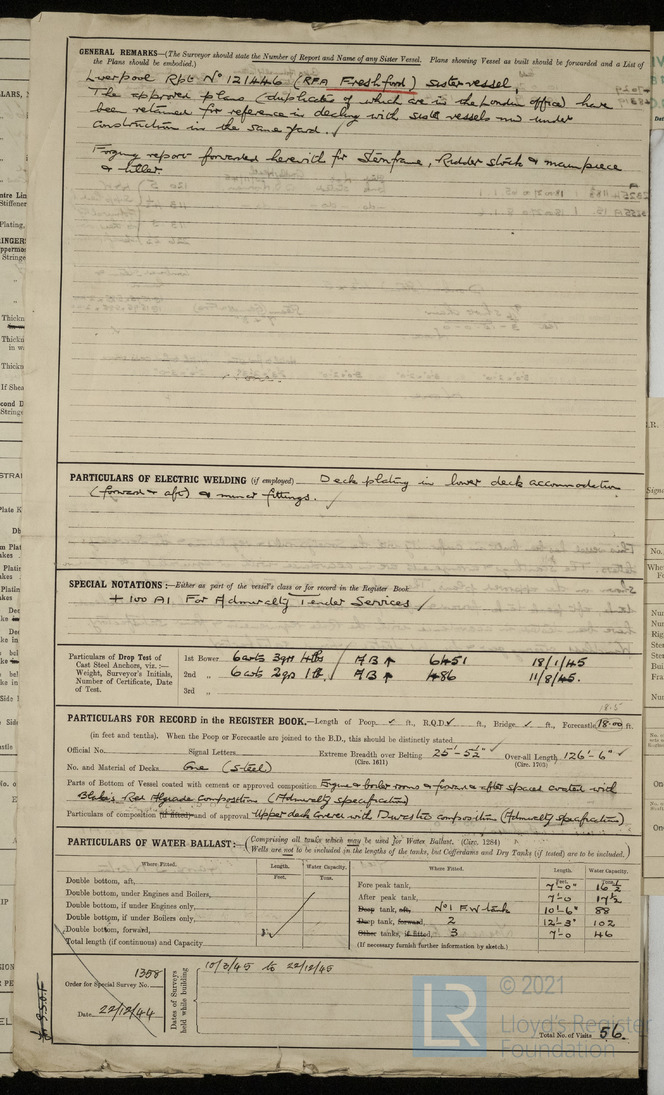 GENERAL REMARKS—(The Surveyor should state the Number of Report and Name of any Sister Vessel. Plans showing Vessel as built should be forwarded and a List of
the Plans should be embodied.)
Liverpool Rpt No 121446 (RFA Freshford) Sister vessel.
The approved plans (duplicates of which are in the London office) have
been retained for reference in dealing with sister vessels now under
construction in the same yard.
Forging report forwarded herewith for Sternframe, Rudder stock & mainpiece
& tiller
PARTICULARS OF ELECTRIC WELDING (if employed) Deck plating in lower deck accommodation
(forward & aft) & minor fittings.
SPECIAL NOTATIONS:—Either as part of the vessel's class or for record in the Register Book
+ 100 A1 For Admiralty Tender Services
Particulars of Drop Test of
Cast Steel Anchors, viz.:—
Weight, Surveyor's Initials,
Number of Certificate, Date
of Test.
1st Bower 6 cwts 3 qrs 4 lbs 6451 18/1/45
2nd „ 6 cwts 2 qrs 1 lb. 486 11/8/45.
3rd „
18.5
PARTICULARS FOR RECORD in the REGISTER BOOK.—Length of Poop ft., R.Q.D. ft., Bridge ft., Forecastle 18.00 ft.
(in feet and tenths). When the Poop or Forecastle are joined to the B.D., this should be distinctly stated
Official No. Signal Letters Extreme Breadth over Belting 25'-5½" Over-all Length 126'-6"
(Circ. 1611) (Circ. 1703)
No. and Material of Decks One (Steel)
Parts of Bottom of Vessel coated with cement or approved composition Engine & boiler rooms & forward & after spaces coated with
Blake's Red Composition (Admiralty specification)
Particulars of composition (if fitted) and of approval Upper deck covered with composition (Admiralty specification)
PARTICULARS OF WATER BALLAST:—(Comprising all tanks which may be used for Water Ballast. (Circ. 1284)
Wells are not to be included in the lengths of the tanks, but Cofferdams and Dry Tanks (if tested) are to be included.)
Where Fitted. Length. Water Capacity. Where Fitted. Length. Water Capacity.
Feet. Tons. Feet. Tons.
Double bottom, aft,
Double bottom, under Engines and Boilers,
Double bottom, if under Engines only,
Double bottom, if under Boilers only,
Double bottom, forward,
Total length (if continuous) and Capacity
Fore peak tank, 7'-0" 16½
After peak tank, 7'-0 17½
Deep tank, aft, No 1 F W tank 10'-6" 88
Deep tank, forward, 2 12'-3" 102
Other tanks, if fitted, 3 7'-0 46
(If necessary furnish further information by sketch.)
Order for Special Survey No. 1358
Date 22/12/44
Dates of Surveys
held while building
10/3/45 to 22/12/45
Total No. of Visits 56.
LR
© 2021
Lloyd's Register
Foundation